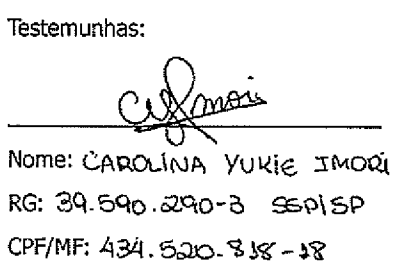 Testemunhas:
Nome: CAROLINA YUKIE IMORI
RG: 39.590.290-3 SSP/SP
CPF/MF: 434.520.818-18